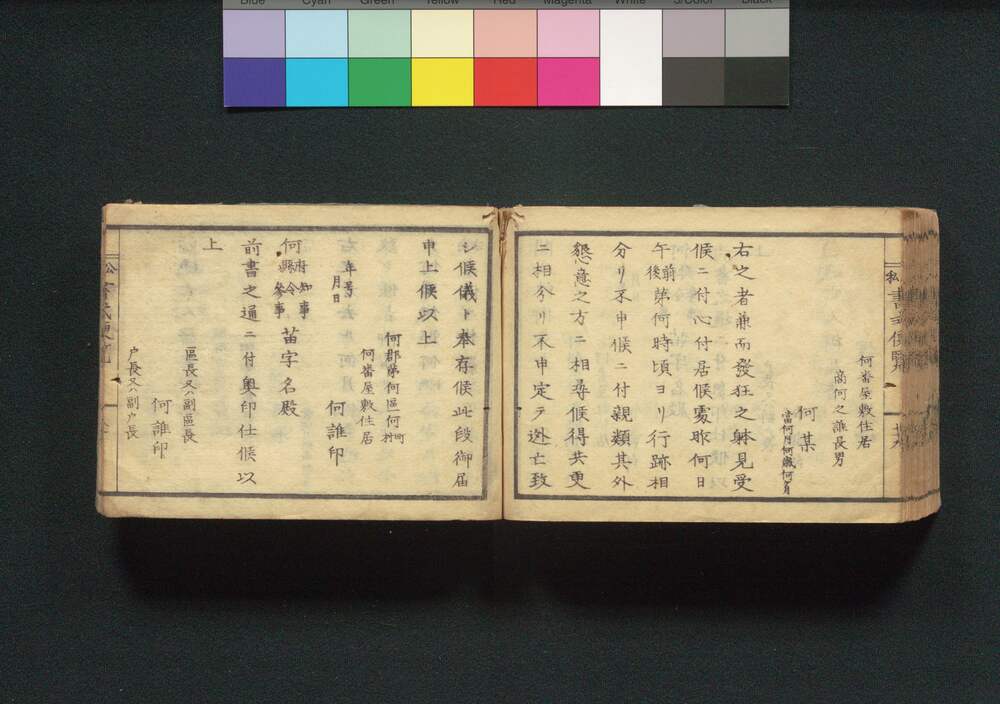 Blue Cyan Green Yellow Red Magenta White 3/Color Black
何番屋敷住居
高何之誰長男
何某
當何月何歳何月
右之者兼而發狂之躰見受
候ニ付心付居候處昨何日
午前後第何時頃ヨリ行跡相
分リ不申候ニ付親類其外
懇意之方ニ相尋候得共更
ニ相分リ不申定テ迯亡致
シ候儀ト奉存候此段御届
申上候以上
何郡第何區何町村
何番屋敷住居
年号月日
何誰印
何府知事縣令參事 苗字名殿
前書之通ニ付奥印仕候以
上
區長又ハ副區長
何誰印
户長又ハ副户長